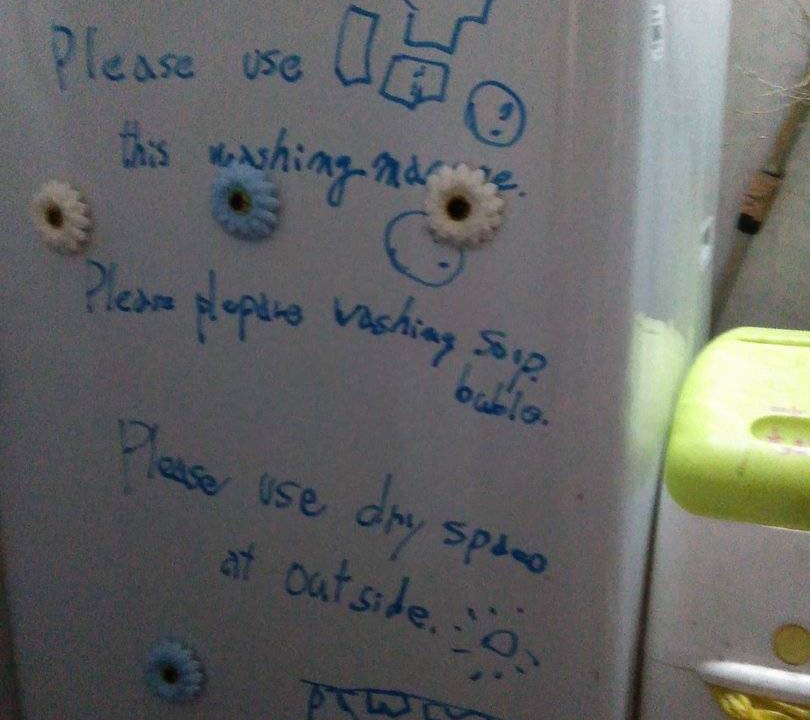 Please use
this washing machine.
Please plepare washing soap
bable.
Please use dry space
at outside.